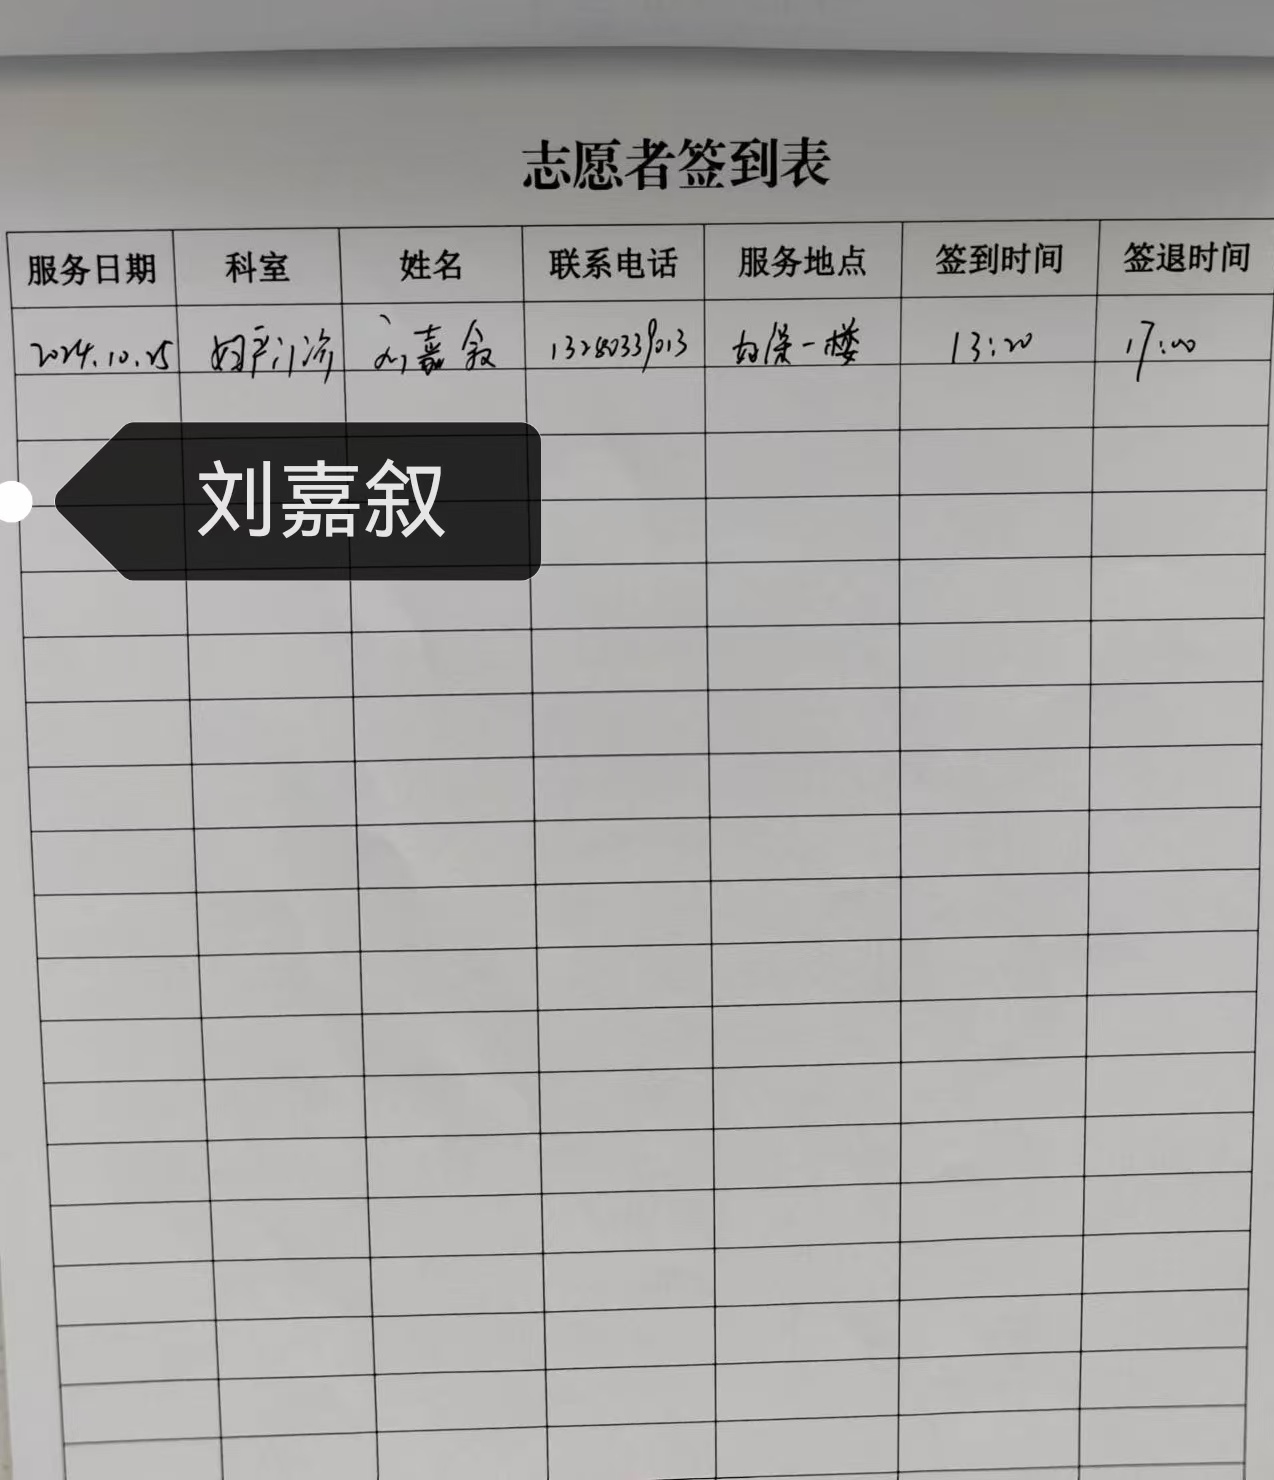 志愿者签到表
服务日期 科室 姓名 联系电话 服务地点 签到时间 签退时间
2024.10.25 妇产门诊 刘嘉叙 13280339013 妇保一楼 13:20 17:00
刘嘉叙